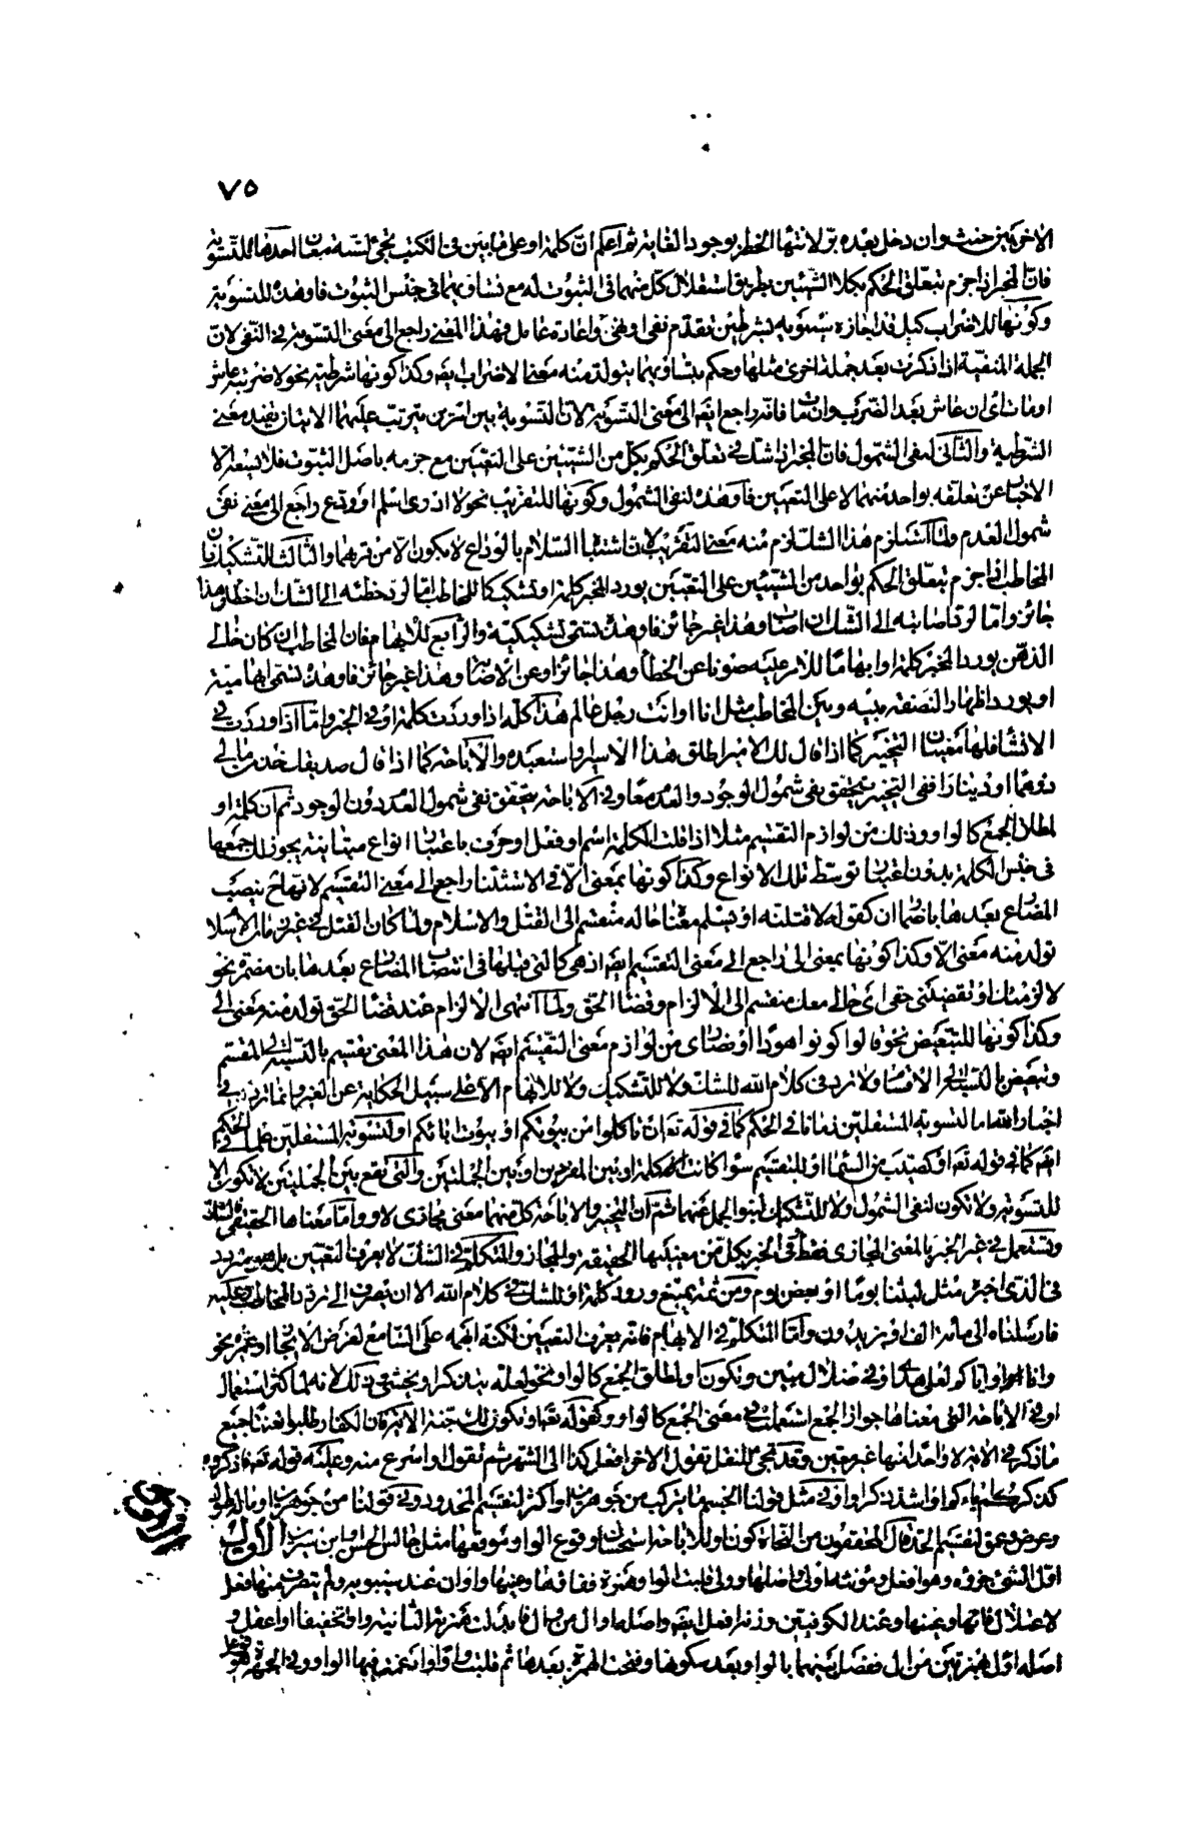 ٧٥
الاخريين حنث وان دخل بعده بر لانتهاء الحظر بوجود الغاية ثم اعلم ان كلمة او على ما بين في الكتب تجئ لستة معان احدها للتسوية
فان المخبر اذا جزم بتعلق الحكم بكلا الشيئين بطريق استقلال كل منهما في الثبوت له مع تساويهما في جنس الثبوت فاو هذه للتسوية
وكونها للاضراب كبل فقد اجازه سيبويه بشرطين تقدم نفي او نهي واعادة عامل وهذا المعنى راجع الى معنى التسوية في النفي لان
الجملة المنفية اذا ذكرت بعد جملة اخرى مثلها وحكم بتساويهما يتولد منه معنى الاضراب ايضا وكذا كونها شرطية نحو لاضربنه عاش
او مات اى ان عاش بعد الضرب وان مات فانه راجع ايضا الى معنى التسوية لان التسوية بين امرين يترتب عليهما الاتيان يفيد معنى
الشرطية والثاني لنفي الشمول فان المخبر ان شك في تعلق الحكم بكل من الشيئين على التعيين مع جزمه باصل الثبوت فلا يسعه الا
الاخبار عن تعلقه بواحد منهما لا على التعيين فاو هذه لنفي الشمول وكونها للتقريب نحو لا ادرى اسلم او ودع راجع الى معنى نفي
شمول العدم ولما استلزم هذا الشك لزم منه معنى التقريب لان اشتباه السلام بالوداع لا يكون الا من قربهما والثالث للتشكيك فان
المخاطب اذا جزم بتعلق الحكم بواحد من الشيئين على التعيين يورد المخبر كلمة او تشكيكا للمخاطب اما لرد خطئه الى الشك ان اخطأ وهذا
جائز واما لرد اصابته الى الشك ان اصاب وهذا غير جائز فاو هذه تسمى تشكيكية والرابع للابهام فان المخاطب ان كان خالى
الذهن يورد المخبر كلمة او ابهاما للامر عليه صونا عن الخطأ وهذا جائز او عن الاصابة وهذا غير جائز فاو هذه تسمى ابهامية
او يورد اظهارا لنصفة بينه وبين المخاطب مثل انا او انت رجل عالم هذا كله اذا وردت كلمة او في الخبر واما اذا وردت في
الانشاء فلها معنيان التخيير كما اذا قال لك الامير اطلق هذا الاسير او استعبده والاباحة كما اذا قال صديقك خذ من مالي
درهما او دينارا ففي التخيير يتحقق نفي شمول الوجود والعدم معا وفي الاباحة يتحقق نفي شمول العدم دون الوجود ثم ان كلمة او
لمطلق الجمع كالواو وذلك من لوازم التقسيم مثلا اذا قلت الكلمة اسم او فعل او حرف باعتبار انواع متباينة يجوز لك جمعها
في جنس الكلمة بدون اعتبار توسط تلك الانواع وكذا كونها بمعنى الا في الاستثناء راجع الى معنى التقسيم لانها ينصب
المضارع بعدها باضمار ان كقوله لاقتلنه او يسلم معناه حاله منقسم الى القتل والاسلام ولما كان القتل في غير زمان الاسلام
تولد منه معنى الا وكذا كونها بمعنى الى راجع الى معنى التقسيم ايضا اذ هي كالتي قبلها في انتصاب المضارع بعدها بان مضمرة نحو
لالزمنك او تقضيني حقي اى حالي معك منقسم الى الالزام وقضاء الحق ولما انتهى الالزام عند قضاء الحق تولد منه معنى الى
وكذا كونها للتبعيض نحو قالوا كونوا هودا او نصارى من لوازم معنى التقسيم ايضا لان هذا المعنى تقسيم بالنسبة الى المقسم
وتبعيض بالنسبة الى الاقسام ولا ترد في كلام الله للشك ولا للتشكيك ولا للابهام الا على سبيل الحكاية عن الغير وانما ترد في
اخبار الله اما لتسوية المستقلين زمانا في الحكم كما في قوله تعالى ان تأكلوا من بيوتكم او بيوت آبائكم او لتسوية المستقلين علما في الحكم
ايضا كما في قوله تعالى او كصيب من السماء او للتقسيم سواء كانت الكلمة او بين المفردين او بين الجملتين والتي تقع بين الجملتين لا تكون الا
للتسوية ولا تكون لنفي الشمول ولا للتشكيك لنبو الجمل عنهما ثم ان التخيير والاباحة كل منهما معنى مجازى لاو واما معناها الحقيقي الشك
وتستعمل في غير الخبر بالمعنى المجازى فقط وفي الخبر بكل من معنييها الحقيقة والمجاز والمتكلم في الشك لا يعرف التعيين بل هو متردد
في الذى اخبر مثل لبثنا يوما او بعض يوم ومن ثمة يمتنع ورود كلمة او للشك في كلام الله الا ان يصرف الى تردد المخاطب وعليه
فارسلناه الى مائة الف او يزيدون واما المتكلم في الابهام فانه يعرف التعيين لكنه ابهمه على السامع لغرض الايجاز او غيره نحو
وانا او اياكم لعلى هدى او في ضلال مبين وتكون او لمطلق الجمع كالواو نحو لعله يتذكر او يخشى وذلك لانه لما كثر استعمال
او في الاباحة التي معناها جواز الجمع استعملت في معنى الجمع كالواو وكقوله تعالى او تكون لك جنة الآية فان الكفار طلبوا تعنتا جميع
ما ذكر في الآية لا واحدا منها غير معين وقد تجئ للنقل تقول لاخر افعل كذا الى الشهر ثم تقول او اسرع منه وعليه قوله تعالى فاذكروه
كذكركم آباءكم او اشد ذكرا واو في مثل قولنا الجسم ما يتركب من جوهرين او اكثر لتقسيم المحدود وفي قولنا من جوهرين او ما له طول
وعرض وعمق لتقسيم الحد قال المحققون من النحاة كون او للاباحة استحسان وقوع الواو موقعها مثل جالس الحسن او ابن سيرين الاول
اول الشئ جزؤه وهو افعل ومؤنثه اولى واصلها وولى قلبت الواو همزة ففاؤها وعينها واوان عند سيبويه ولم يتصرف منها فعل
لاعتلال فائها وعينها وعند الكوفيين وزنه افعل ايضا واصله اوأل من وأل فابدلت همزته الثانية واوا تخفيفا او اعفل و
اصله اأول بهمزتين من اال ففصل بينهما بالواو بعد سكونها وفتحت الهمزة بعدها ثم قلبت واوا وادغمت فيها الواو وفي الجمهرة هو